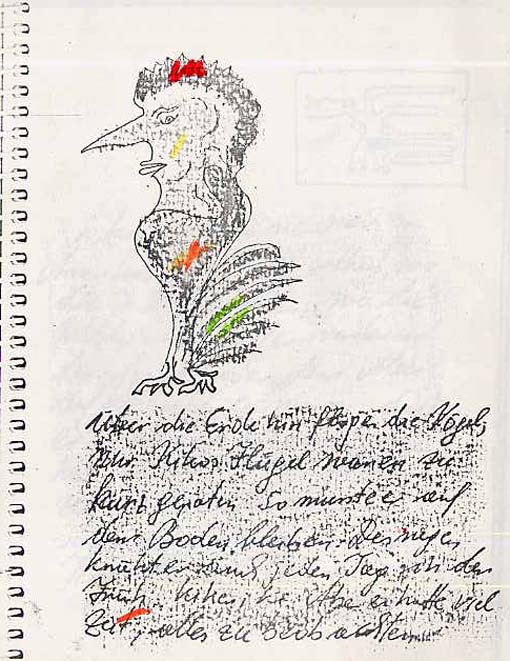 Über die Erde hin flogen die Vögel,
nur Kikos Flügel waren zu
kurz geraten. So musste er auf
dem Boden bleiben. Deswegen
krähte er jeden Tag in der
Früh. er hatte viel
Zeit, alles zu beobachten